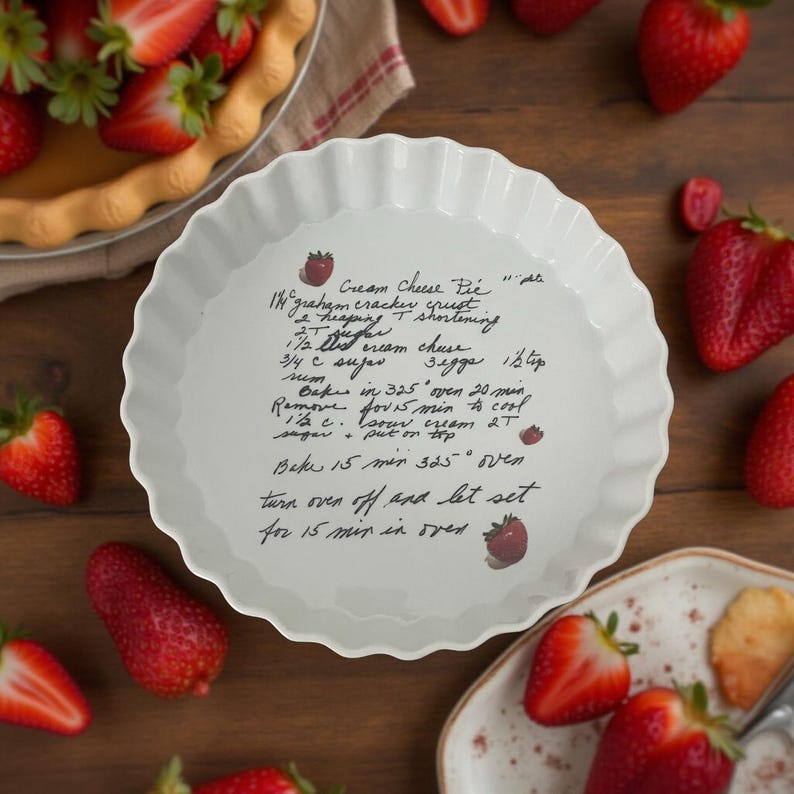 Cream Cheese Pie
1 1/4 c graham cracker crust
2 heaping T shortening
2T sugar
1 1/2 lbs cream cheese
3/4 c sugar 3 eggs 1 1/2 tsp
rum
Bake in 325° oven 20 min
Remove for 15 min to cool
1 1/2 c. sour cream 2T
sugar + put on top
Bake 15 min 325° oven
turn oven off and let set
for 15 min in oven